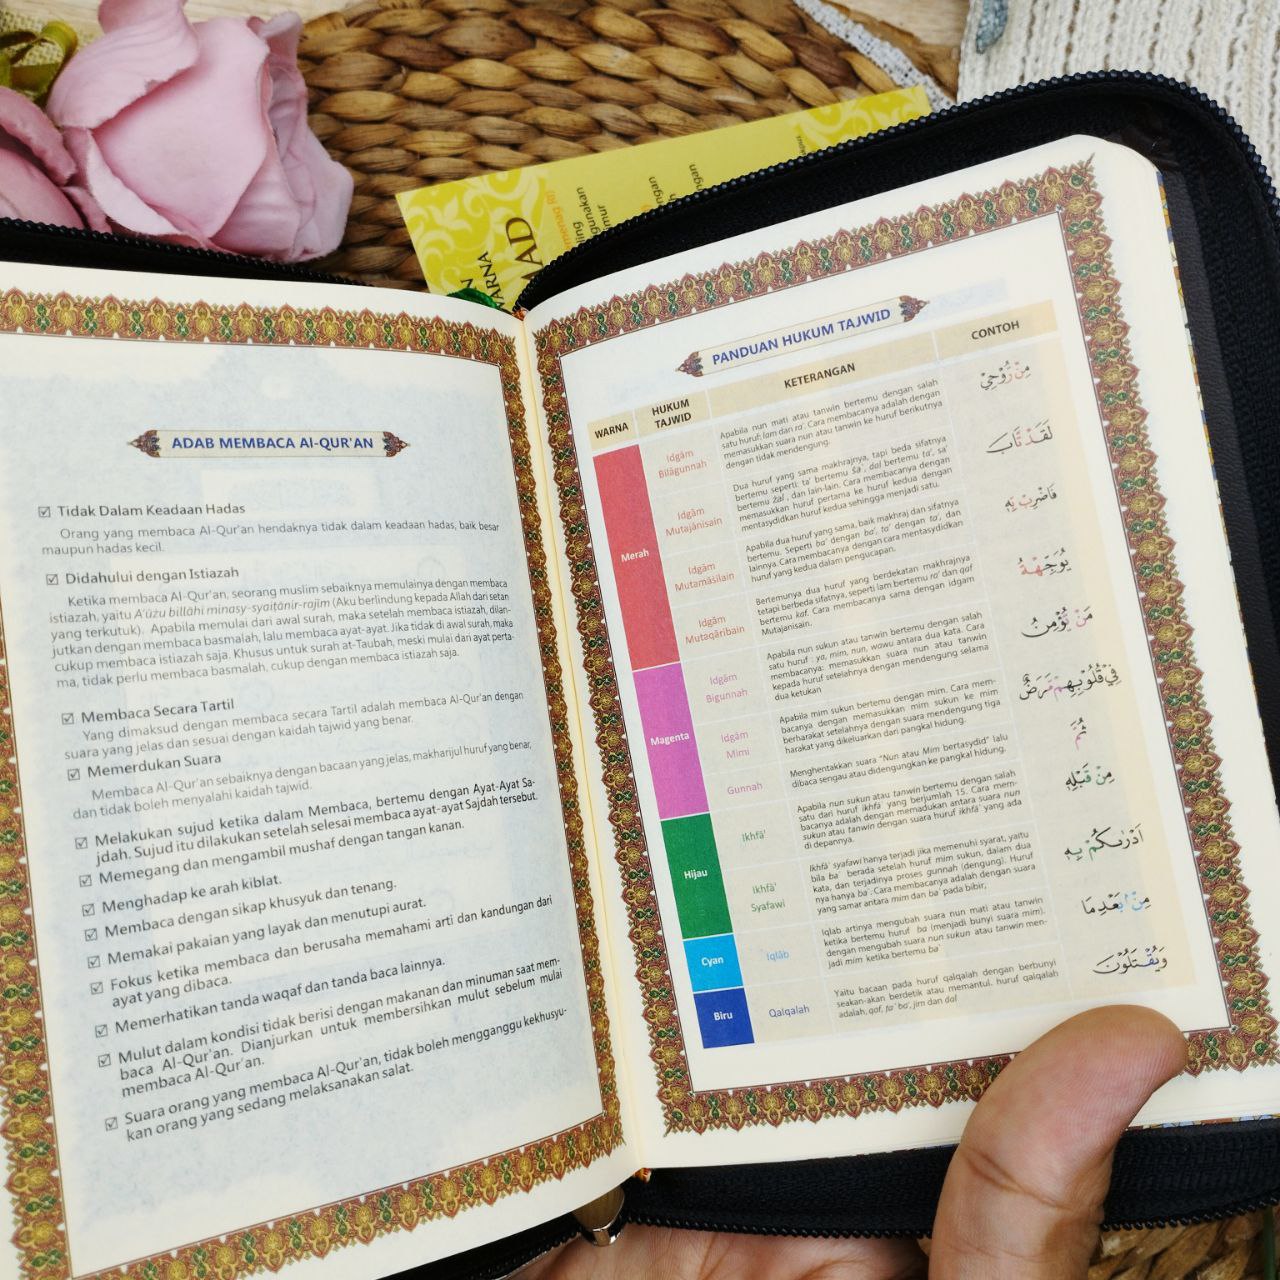 ADAB MEMBACA Al-QUR'AN
☑ Tidak Dalam Keadaan Hadas
Orang yang membaca Al-Qur'an hendaknya tidak dalam keadaan hadas, baik besar
maupun hadas kecil.
☑ Didahului dengan Istiazah
Ketika membaca Al-Qur'an, seorang muslim sebaiknya memulainya dengan membaca
istiazah, yaitu A'ūżu billāhi minasy-syaiṭānir-rajim (Aku berlindung kepada Allah dari setan
yang terkutuk). Apabila memulai dari awal surah, maka setelah membaca istiazah, dilan-
jutkan dengan membaca basmalah, lalu membaca ayat-ayat. Jika tidak di awal surah, maka
cukup membaca istiazah saja. Khusus untuk surah at-Taubah, meski mulai dari ayat perta-
ma, tidak perlu membaca basmalah, cukup dengan membaca istiazah saja.
☑ Membaca Secara Tartil
Yang dimaksud dengan membaca secara Tartil adalah membaca Al-Qur'an dengan
suara yang jelas dan sesuai dengan kaidah tajwid yang benar.
☑ Memerdukan Suara
Membaca Al-Qur'an sebaiknya dengan bacaan yang jelas, makharijul huruf yang benar,
dan tidak boleh menyalahi kaidah tajwid.
☑ Melakukan sujud ketika dalam Membaca, bertemu dengan Ayat-Ayat Sa-
jdah. Sujud itu dilakukan setelah selesai membaca ayat-ayat Sajdah tersebut.
☑ Memegang dan mengambil mushaf dengan tangan kanan.
☑ Menghadap ke arah kiblat.
☑ Membaca dengan sikap khusyuk dan tenang.
☑ Memakai pakaian yang layak dan menutupi aurat.
☑ Fokus ketika membaca dan berusaha memahami arti dan kandungan dari
ayat yang dibaca.
☑ Memerhatikan tanda waqaf dan tanda baca lainnya.
☑ Mulut dalam kondisi tidak berisi dengan makanan dan minuman saat mem-
baca Al-Qur'an. Dianjurkan untuk membersihkan mulut sebelum mulai
membaca Al-Qur'an.
☑ Suara orang yang membaca Al-Qur'an, tidak boleh mengganggu kekhusyu-
kan orang yang sedang melaksanakan salat.
PANDUAN HUKUM TAJWID
WARNA
HUKUM
TAJWID
KETERANGAN
CONTOH
Merah
Idgām
Bilāgunnah
Apabila nun mati atau tanwin bertemu dengan salah
satu huruf: lam dan ra'. Cara membacanya adalah dengan
memasukkan suara nun atau tanwin ke huruf berikutnya
dengan tidak mendengung.
مِنْ رُّوْحِيْ
Idgām
Mutajānisain
Dua huruf yang sama makhrajnya, tapi beda sifatnya
bertemu seperti: ta' bertemu ṡa', dal bertemu ta', sa'
bertemu żal , dan lain-lain. Cara membacanya dengan
memasukkan huruf pertama ke huruf kedua dengan
mentasydidkan huruf kedua sehingga menjadi satu.
لَقَدْ تَّابَ
Idgām
Mutamāṡilain
Apabila dua huruf yang sama, baik makhraj dan sifatnya
bertemu. Seperti ba' dengan ba', ta' dengan ta', dan
lainnya. Cara membacanya dengan cara mentasydidkan
huruf yang kedua dalam pengucapan.
فَاضْرِبْ بِّهٖ
Idgām
Mutaqāribain
Bertemunya dua huruf yang berdekatan makhrajnya
tetapi berbeda sifatnya, seperti lam bertemu ra' dan qaf
bertemu kaf. Cara membacanya sama dengan idgam
Mutajanisain.
يُوَجِّهْهُّ
Magenta
Idgām
Bigunnah
Apabila nun sukun atau tanwin bertemu dengan salah
satu huruf : ya, mim, nun, wawu antara dua kata. Cara
membacanya: memasukkan suara nun atau tanwin
kepada huruf setelahnya dengan mendengung selama
dua ketukan
مَنْ يُّؤْمِنُ
Idgām
Mimi
Apabila mim sukun bertemu dengan mim. Cara mem-
bacanya dengan memasukkan mim sukun ke mim
berharakat setelahnya dengan suara mendengung tiga
harakat yang dikeluarkan dari pangkal hidung.
فِيْ قُلُوْبِهِمْ مَّرَضٌ
Gunnah
Menghentakkan suara "Nun atau Mim bertasydid" lalu
dibaca sengau atau didengungkan ke pangkal hidung.
ثُمَّ
Hijau
Ikhfā'
Apabila nun sukun atau tanwin bertemu dengan salah
satu dari huruf ikhfā' yang berjumlah 15. Cara mem-
bacanya adalah dengan memadukan antara suara nun
sukun atau tanwin dengan suara huruf ikhfā' yang ada
di depannya.
مِنْ قَبْلِهٖ
Ikhfā'
Syafawi
Ikhfā' syafawi hanya terjadi jika memenuhi syarat, yaitu
bila ba' berada setelah huruf mim sukun, dalam dua
kata, dan terjadinya proses gunnah (dengung). Huruf
nya hanya ba'. Cara membacanya adalah dengan suara
yang samar antara mim dan ba' pada bibir,
اَدْرٰىكُمْ بِهٖ
Cyan
Iqlāb
Iqlab artinya mengubah suara nun mati atau tanwin
ketika bertemu huruf ba (menjadi bunyi suara mim).
dengan mengubah suara nun sukun atau tanwin men-
jadi mim ketika bertemu ba'
مِنْۢ بَعْدِ مَا
Biru
Qalqalah
Yaitu bacaan pada huruf qalqalah dengan berbunyi
seakan-akan berdetik atau memantul. huruf qalqalah
adalah, qaf, ṭa' ba', jim dan dal
وَيَقْتُلُوْنَ